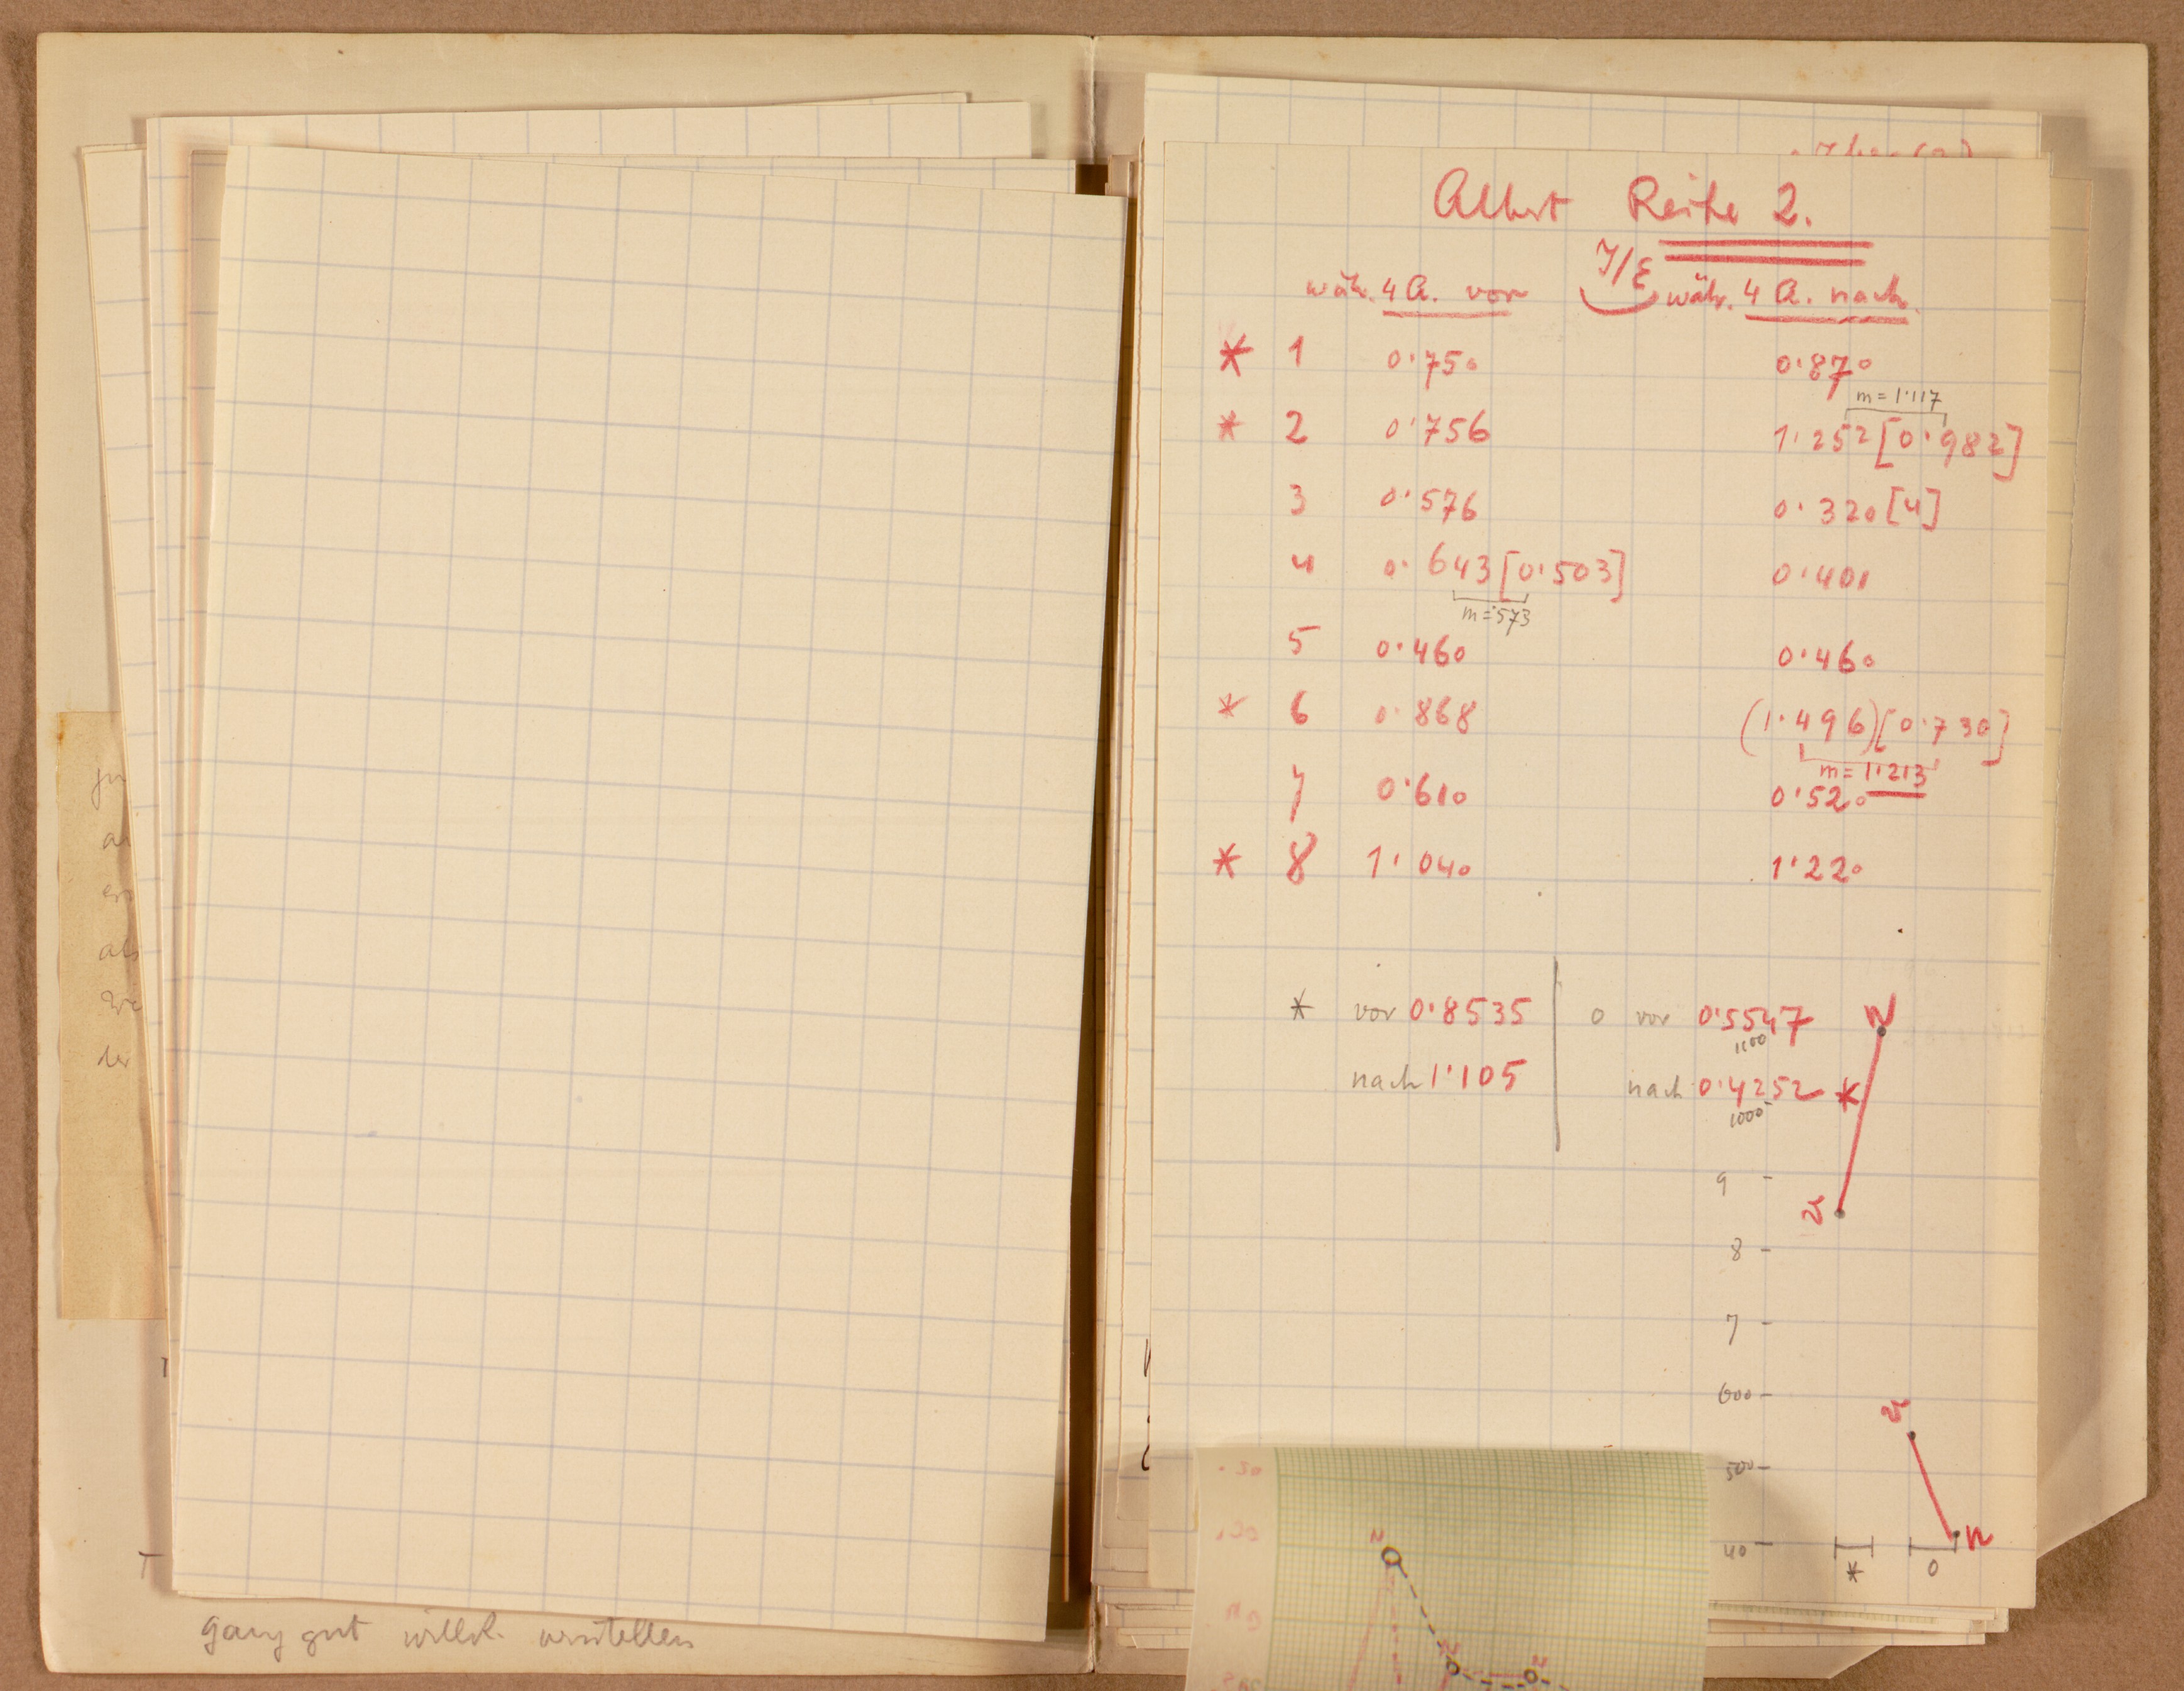 Albert Reihe 2.
J/E
wäh. 4 A. vor währ. 4 A. nach.
* 1 0·750 0·870
m = 1·117
* 2 0·756 1·252 [0·982]
3 0·576 0·320 [4]
4 0·643 [0·503] 0·401
m = ·573
5 0·460 0·460
* 6 0·868 (1·496) [0·730]
m = 1·213
7 0·610 0·520
* 8 1·040 1·220
* vor 0·8535 0 vor 0·5547
1100
nach 1·105 nach 0·4252 *
1000
N
9
v
8
7
600
v
500
40 n
* 0
ju
als
der
T
ganz gut willk. verstellen